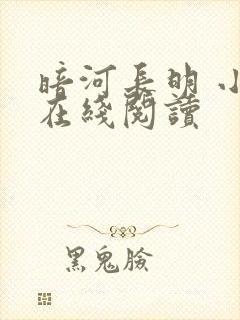 暗河長明 小
在綫閱讀
黑鬼臉